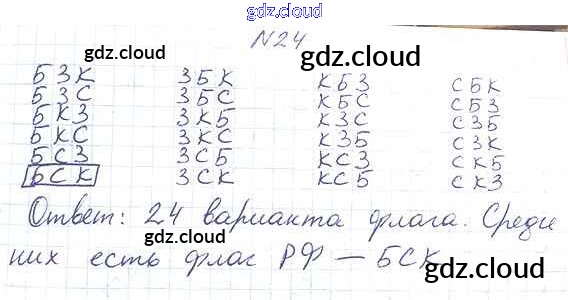 gdz.cloud
N24
gdz.cloud gdz.cloud
БЗК ЗБК КБЗ СБК
БЗС ЗБС КБС СБЗ
БКЗ ЗКБ КЗС СЗБ
БКС ЗКС КЗБ СЗК
БСЗ ЗСБ КСЗ СКБ
БСК ЗСК КСБ СКЗ
gdz.cloud gdz.cloud
Ответ: 24 варианта флага. Среди
gdz.cloud
них есть флаг РФ — БСК
gdz.cloud gdz.cloud